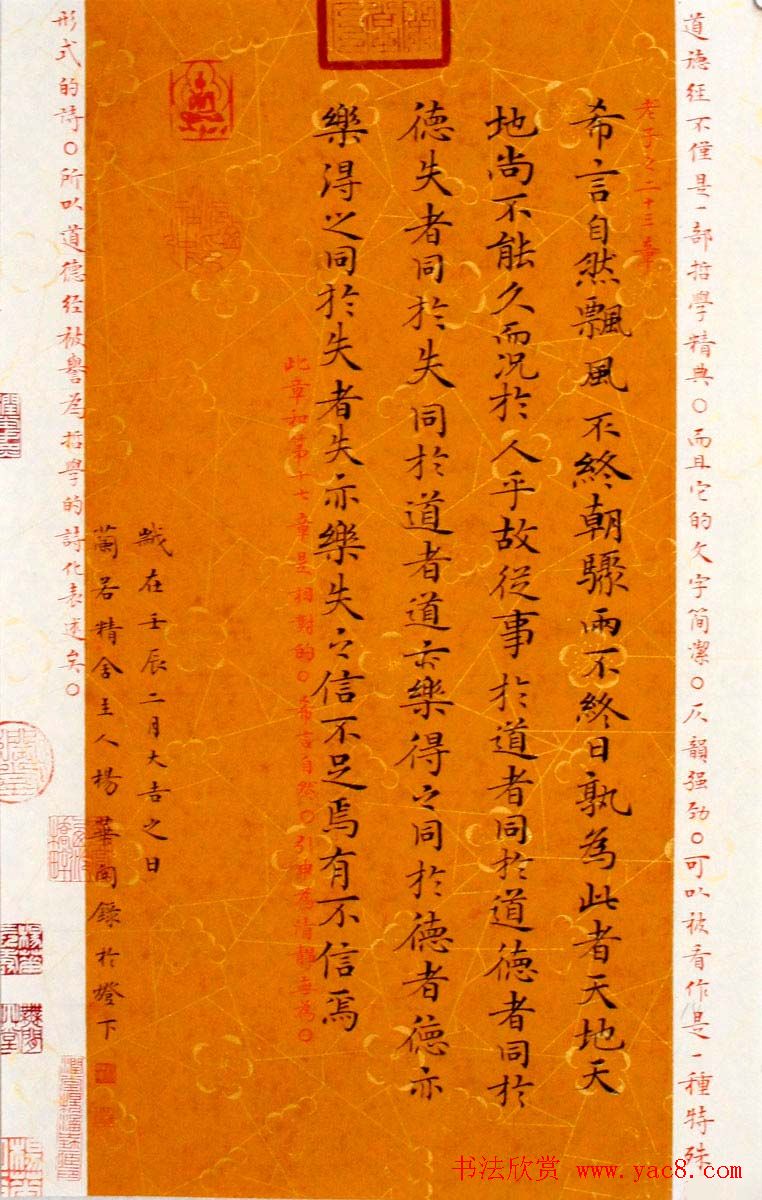 道德经不僅是一部哲學精典○而且它的文字简潔○仄韻强劲○可以被看作是一種特殊
老子之二十三章
希言自然飄風不終朝驟雨不終日孰為此者天地天
地尚不能久而況於人乎故從事於道者同於道德者同於
德失者同於失同於道者道亦樂得之同於德者德亦
樂得之同於失者失亦樂失之信不足焉有不信焉
此章和第十七章是相對的○希言自然○引申為清靜無為○
歲在壬辰二月大吉之日
蘭若精舍主人楊華閣錄於燈下
形式的詩○所以道德经被譽為哲學的詩化表述矣○
书法欣赏 www.yac8.com